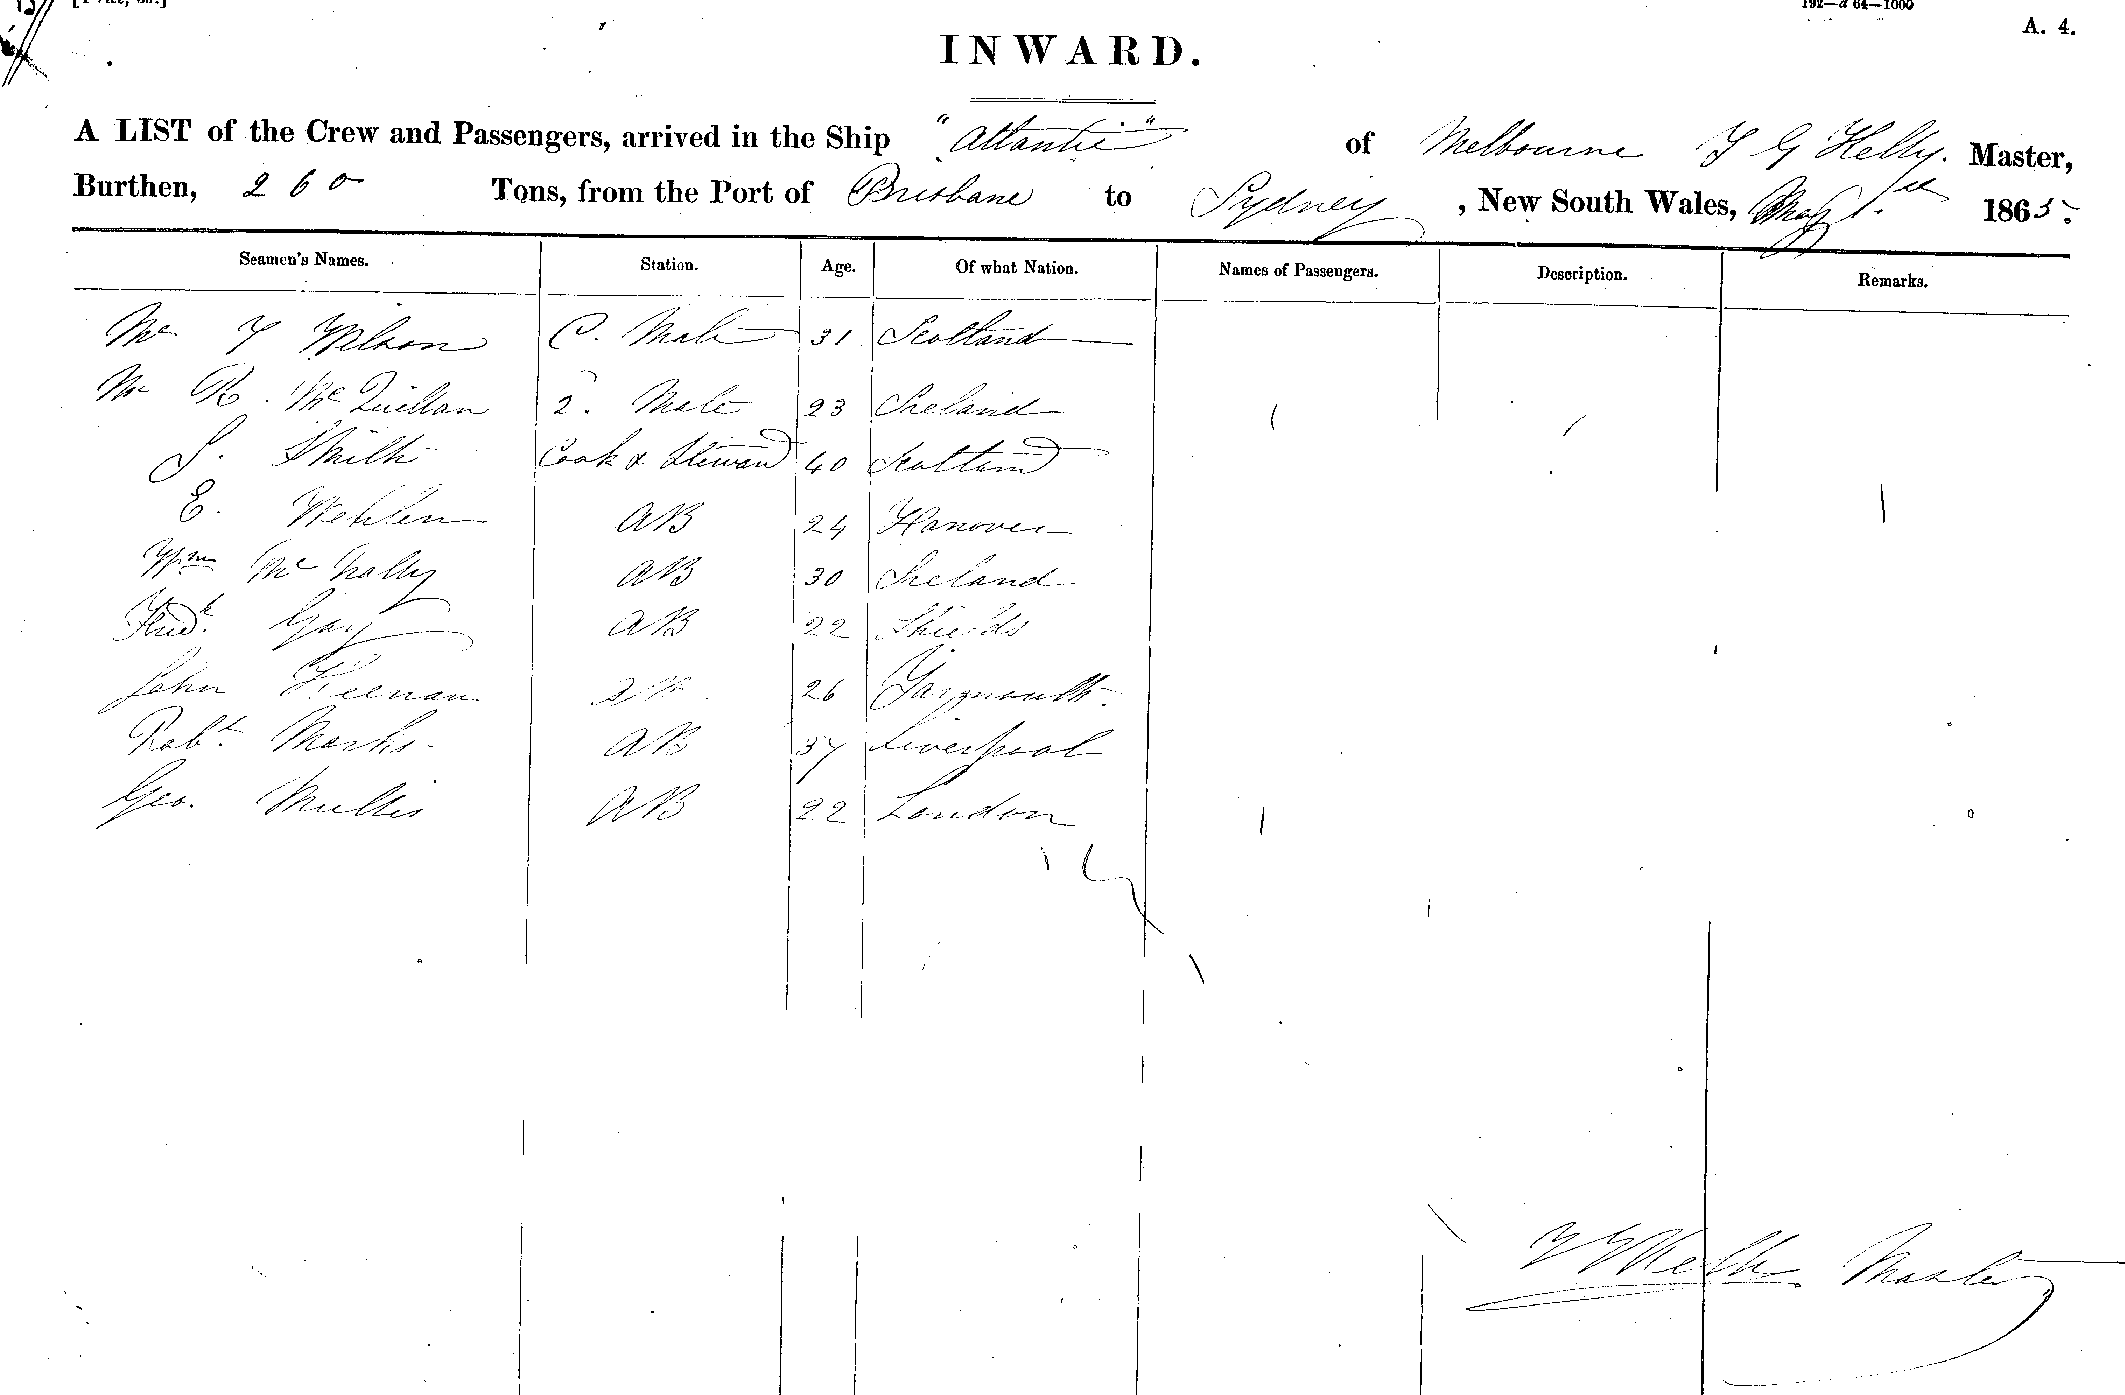 192—d 64—1000
A. 4.
INWARD.
A LIST of the Crew and Passengers, arrived in the Ship "Atlantic" of Melbourne Master,
Burthen, 260 Tons, from the Port of Brisbane to Sydney, New South Wales, May 1st 1865.
Seamen's Names. Station. Age. Of what Nation. Names of Passengers. Description. Remarks.
Mr Wilson C. Mate 31 Scotland
Mr R. McQuillan 2. Mate 23 Ireland
S. Smith Cook & Steward 40 Scotland
E. Wehlen AB 24 Hanover
Wm McNally AB 30 Ireland
Fredk. Gay AB 22 Shields
John Keenan 26 Yarmouth.
Robt. Marks AB 37 Liverpool
Geo. Mullis AB 22 London
Master